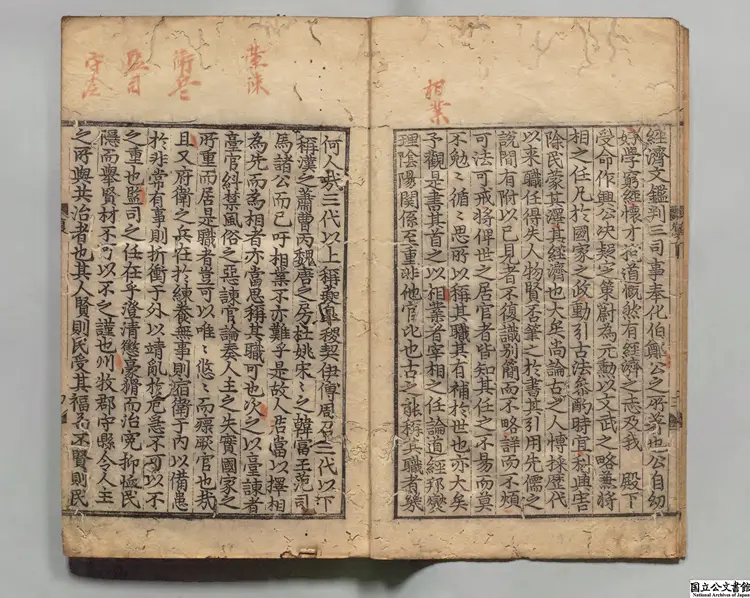 相業
經濟文鑑判三司事奉化伯鄭公之所著也公自幼
好學窮經懷才抱道慨然有經濟之志及我 殿下
受命作興公決疑定策蔚爲元勳以文武之略兼將
相之任凡於國家之政動引古法參酌時宜利興害
除民蒙其澤其經濟也大矣尚論古之人博採歷代
以來職任得失人物賢否筆之於書其引用先儒之
說間有附以己見者不復識別簡而不略詳而不煩
可法可戒將俾世之居官者皆知其任之不易而莫
不勉〻循〻思所以稱其職其有補於世也亦大矣
予觀是書其首之以相業者宰相之任論道經邦燮
理陰陽関係至重非他官比也古之能稱其職者幾
何人㢤三代以上稱夔皐稷契伊傅周召三代以下
稱漢之蕭曹丙魏唐之房杜姚宋〻之韓富王范司
馬諸公而已吁相業不亦難乎是故人君當以擇相
為先而為相者亦當思稱其職可也次之以臺諫者
臺官糾禁風俗之惡諫官論奏人主之失實國家之
所重而居是職者豈可以唯〻悠〻而瘝厥官也㢤
且又府衛之兵在於練養無事則宿衛于內以備患
於非常有事則折衝于外以靖亂於危急不可以不
之重也監司之任在乎澄清懲豪猾而治寃抑恤民
隱而舉賢材不可以不之謹也州牧郡守縣令人主
之所與共治者也其人賢則民受其福而不賢則民
監司
国立公文書館
National Archives of Japan